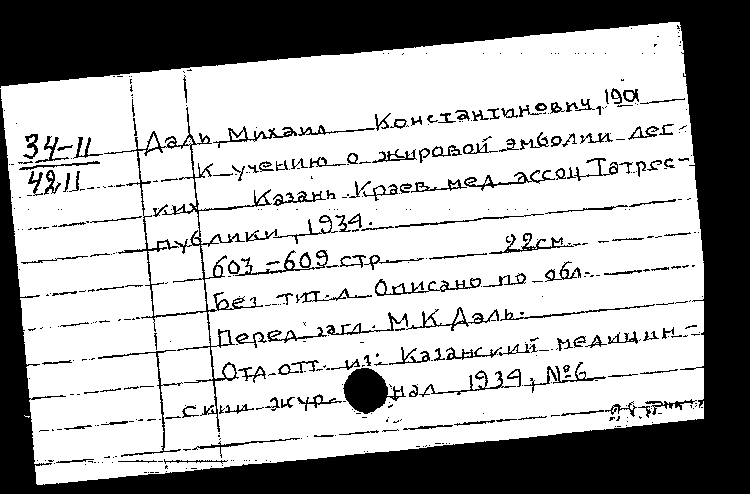 34-11
4211
Даль, Михаил Константинович, 190
К учению о жировой эмболии лег-
ких Казань. Краев. мед. ассоц Татрес-
публики, 1934.
603-609 стр. 22см.
Без тит. л. Описано по обл.
Перед загл. М.К. Даль.
Отд. отт. из: Казанский медицин-
ский жур нал 1934, №6